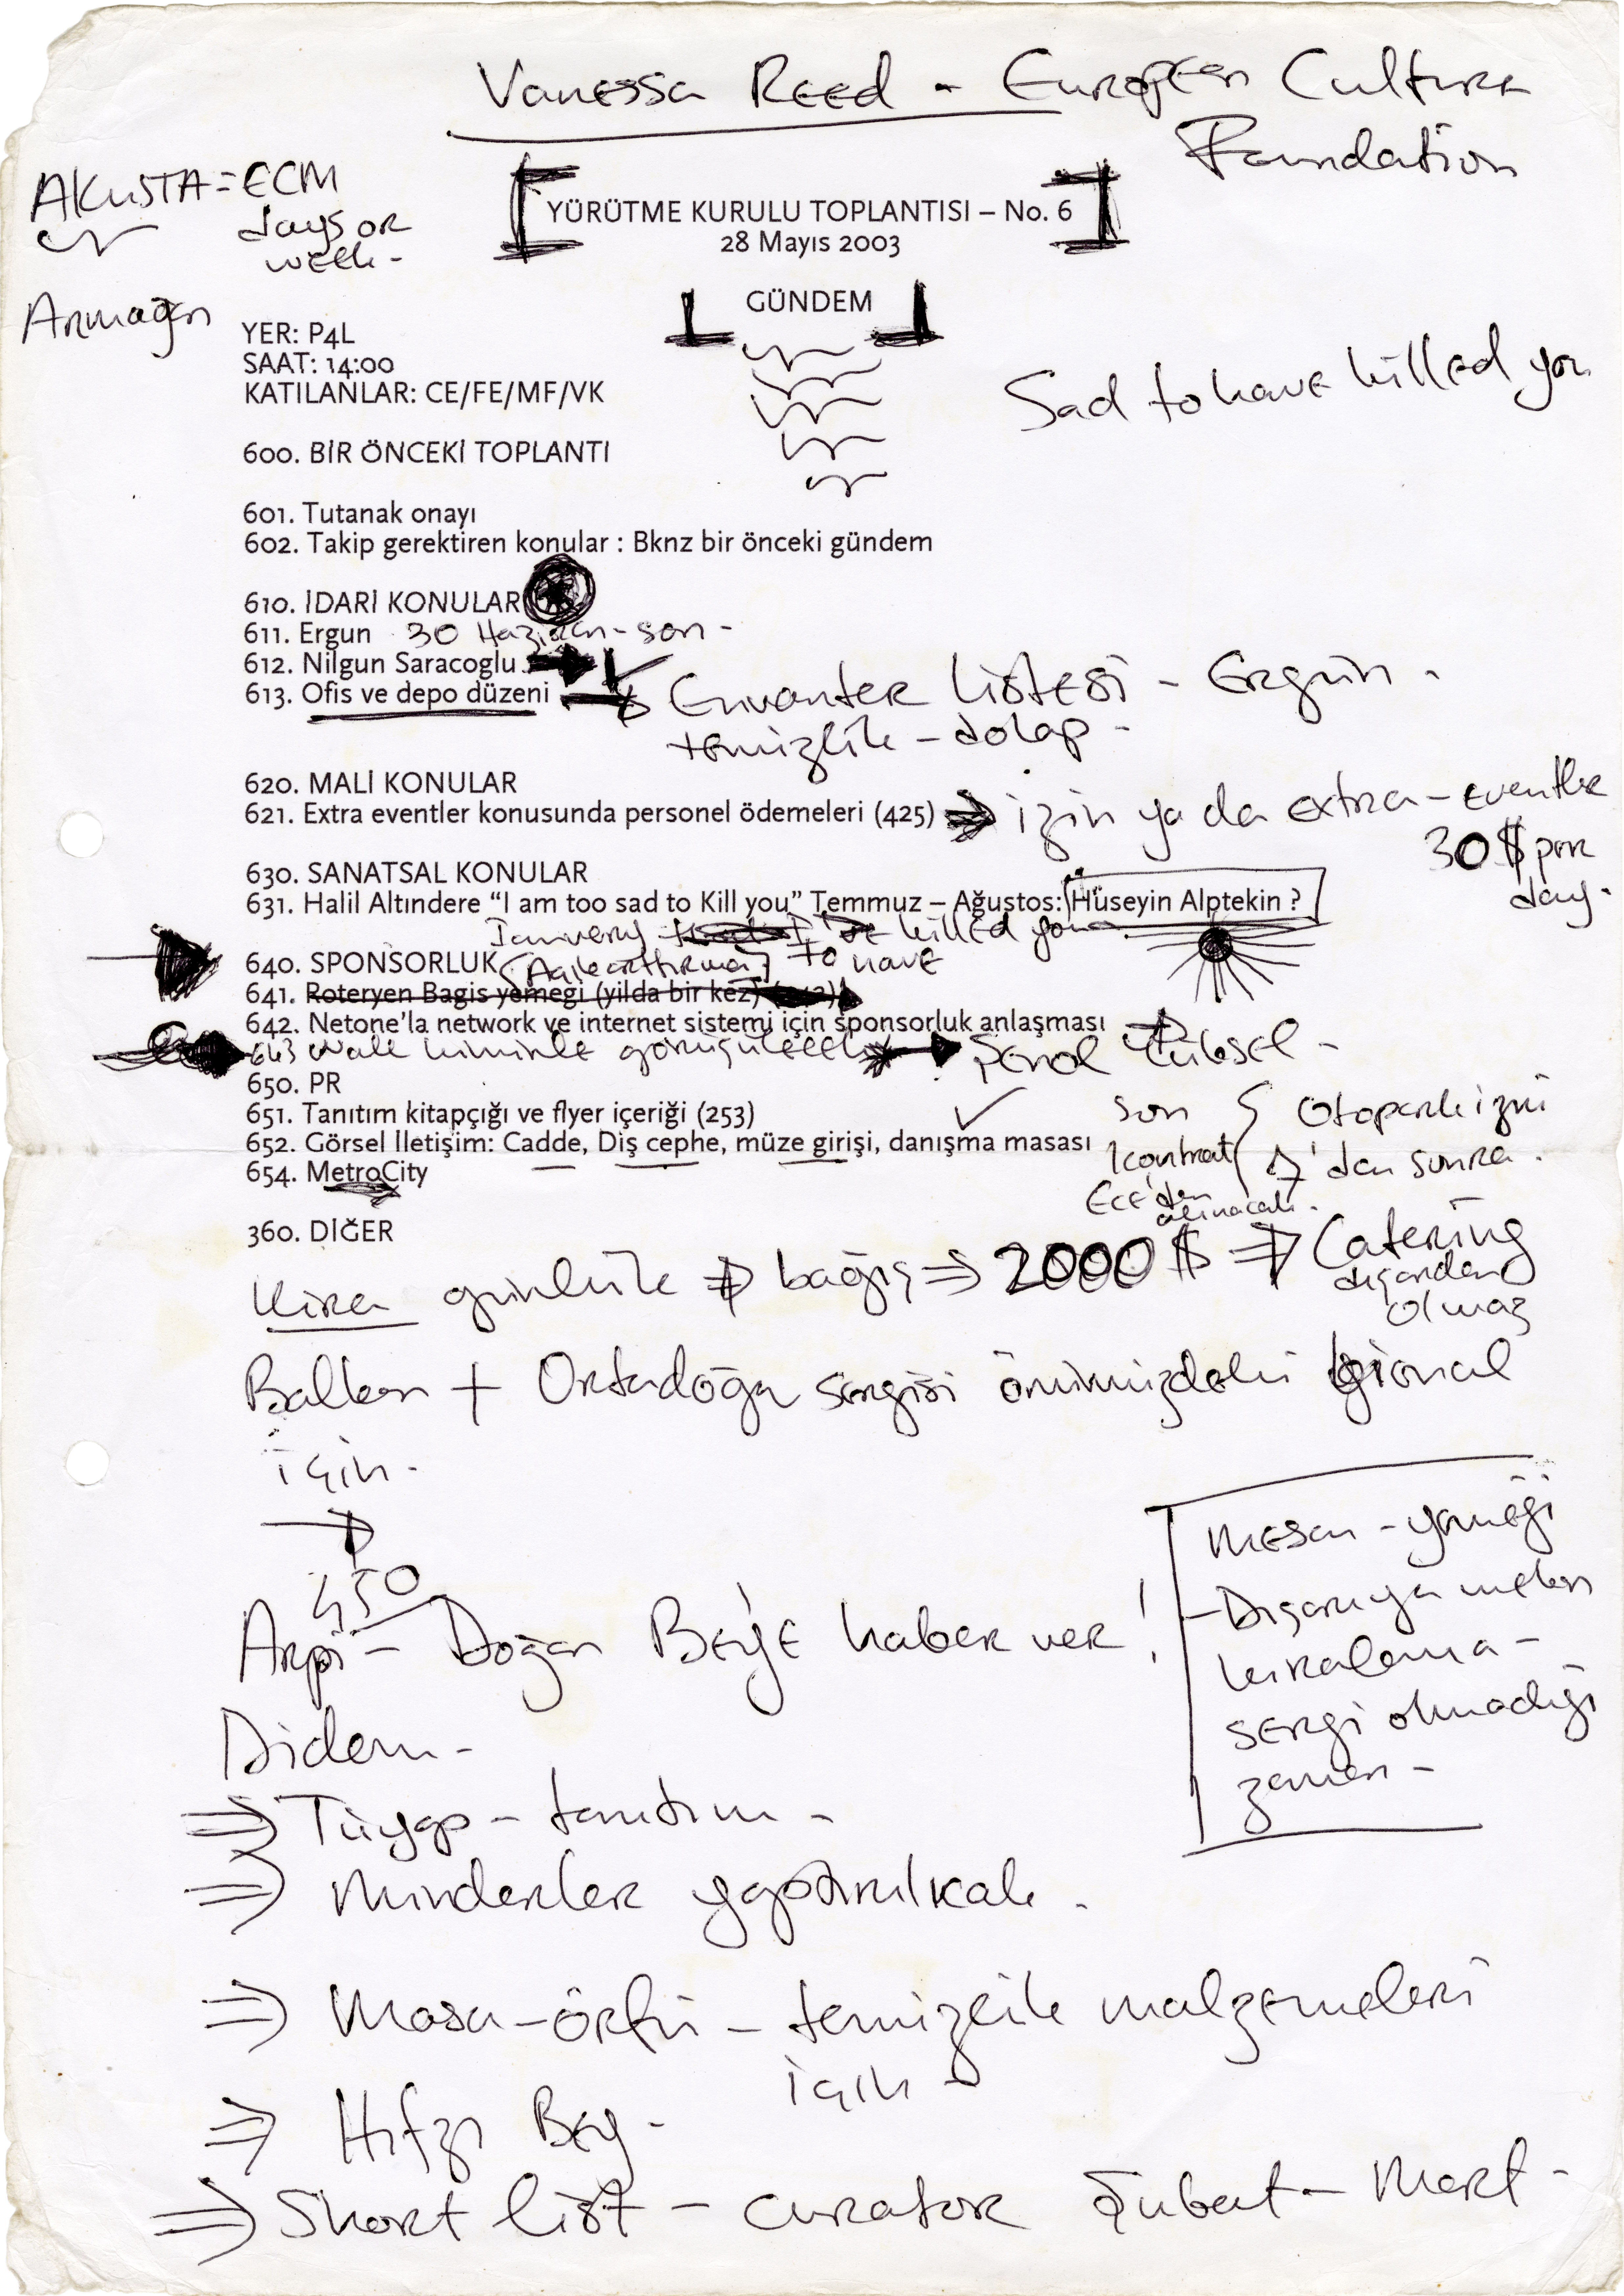 Vanessa Reed - European Culture
Foundation
AKUSTA = ECM
days or
week -
Armağan
YÜRÜTME KURULU TOPLANTISI – No. 6
28 Mayıs 2003
GÜNDEM
YER: P4L
SAAT: 14:00
KATILANLAR: CE/FE/MF/VK
Sad to have killed you
600. BİR ÖNCEKİ TOPLANTI
601. Tutanak onayı
602. Takip gerektiren konular : Bknz bir önceki gündem
610. İDARİ KONULAR
611. Ergun 30 Haziran - son -
612. Nilgun Saracoglu
613. Ofis ve depo düzeni
Envanter listesi - Ergün -
temizlik - dolap -
620. MALİ KONULAR
621. Extra eventler konusunda personel ödemeleri (425) ⇒ izin ya da extra-eventler
30 $ per
day.
630. SANATSAL KONULAR
631. Halil Altındere “I am too sad to Kill you” Temmuz – Ağustos: Hüseyin Alptekin ?
I am very killed you
to have
640. SPONSORLUK
641. Roteryen Bagis yemegi (yilda bir kez)
642. Netone’la network ve internet sistemi için sponsorluk anlaşması
643 Wall kiminle görüşülecek → Şenol Yüksel -
650. PR
651. Tanıtım kitapçığı ve flyer içeriği (253)
652. Görsel İletişim: Cadde, Diş cephe, müze girişi, danışma masası
654. MetroCity
son
kontrat
Ece'den
alınacak.
Otopark izni
7'den sonra.
360. DİĞER
Kira günlük ⇒ bağış ⇒ 2000 $ ⇒ Catering
dışarıdan
olmaz
Balkan + Ortadoğu sergisi önümüzdeki
için -
450
Arpi - Doğan Bey'e haber ver !
Didem -
⇒ Tüyap - tanıtım -
⇒ Minderler yaptırılacak.
⇒ Masa-örtü - temizlik malzemeleri
için -
⇒ Hıfzı Bey -
⇒ Short list - curator Şubat - Mart -
Mesan - yemeği
- Dışarıya mekan
kiralama -
sergi olmadığı
zaman -